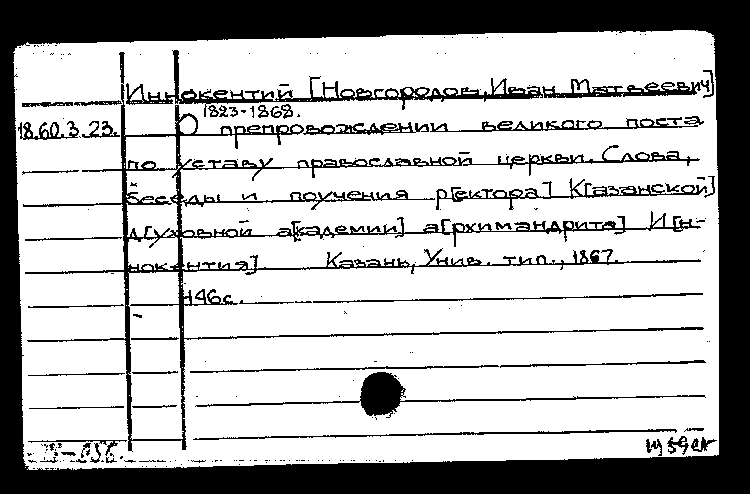 Иннокентий [Новгородов, Иван Матвеевич]
1823-1868.
18.60.3.23. О препровождении великого поста
по уставу православной церкви. Слова,
беседы и поучения р[ектора] К[азанской]
д[уховной а[кадемии] а[рхимандрита] И[н-
нокентия]. Казань, Унив. тип., 1867.
146с.